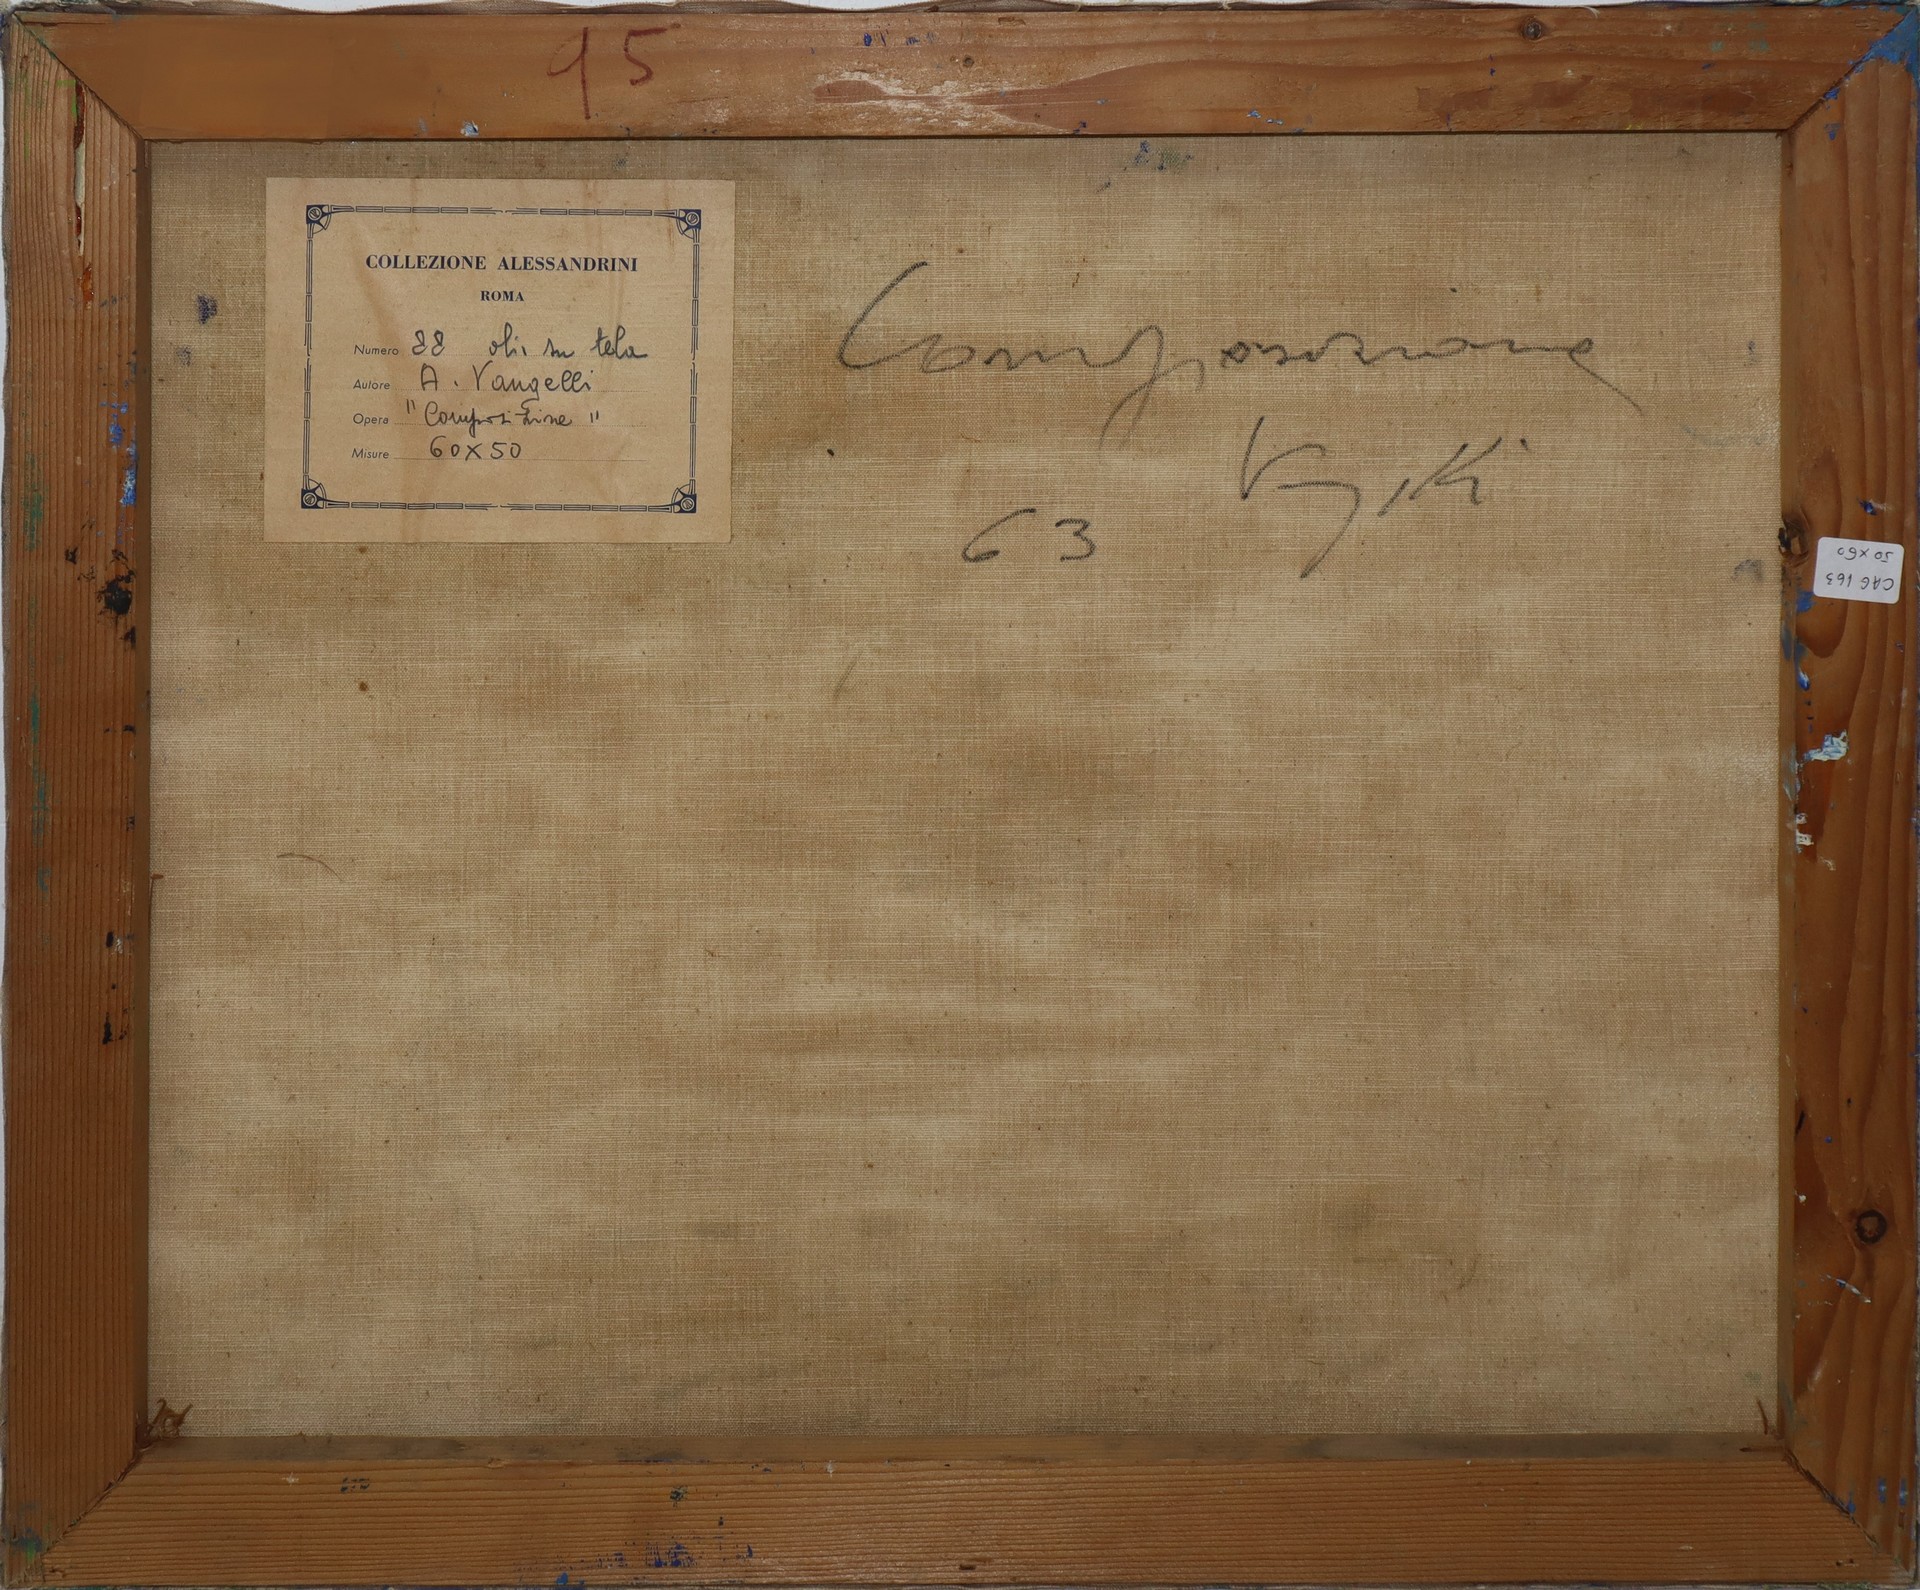 95
COLLEZIONE ALESSANDRINI
ROMA
Numero 88 olio su tela
Autore A. Vangelli
Opera "Composizione"
Misure 60x50
Composizione
Vangelli
63
CAG 163
50x60